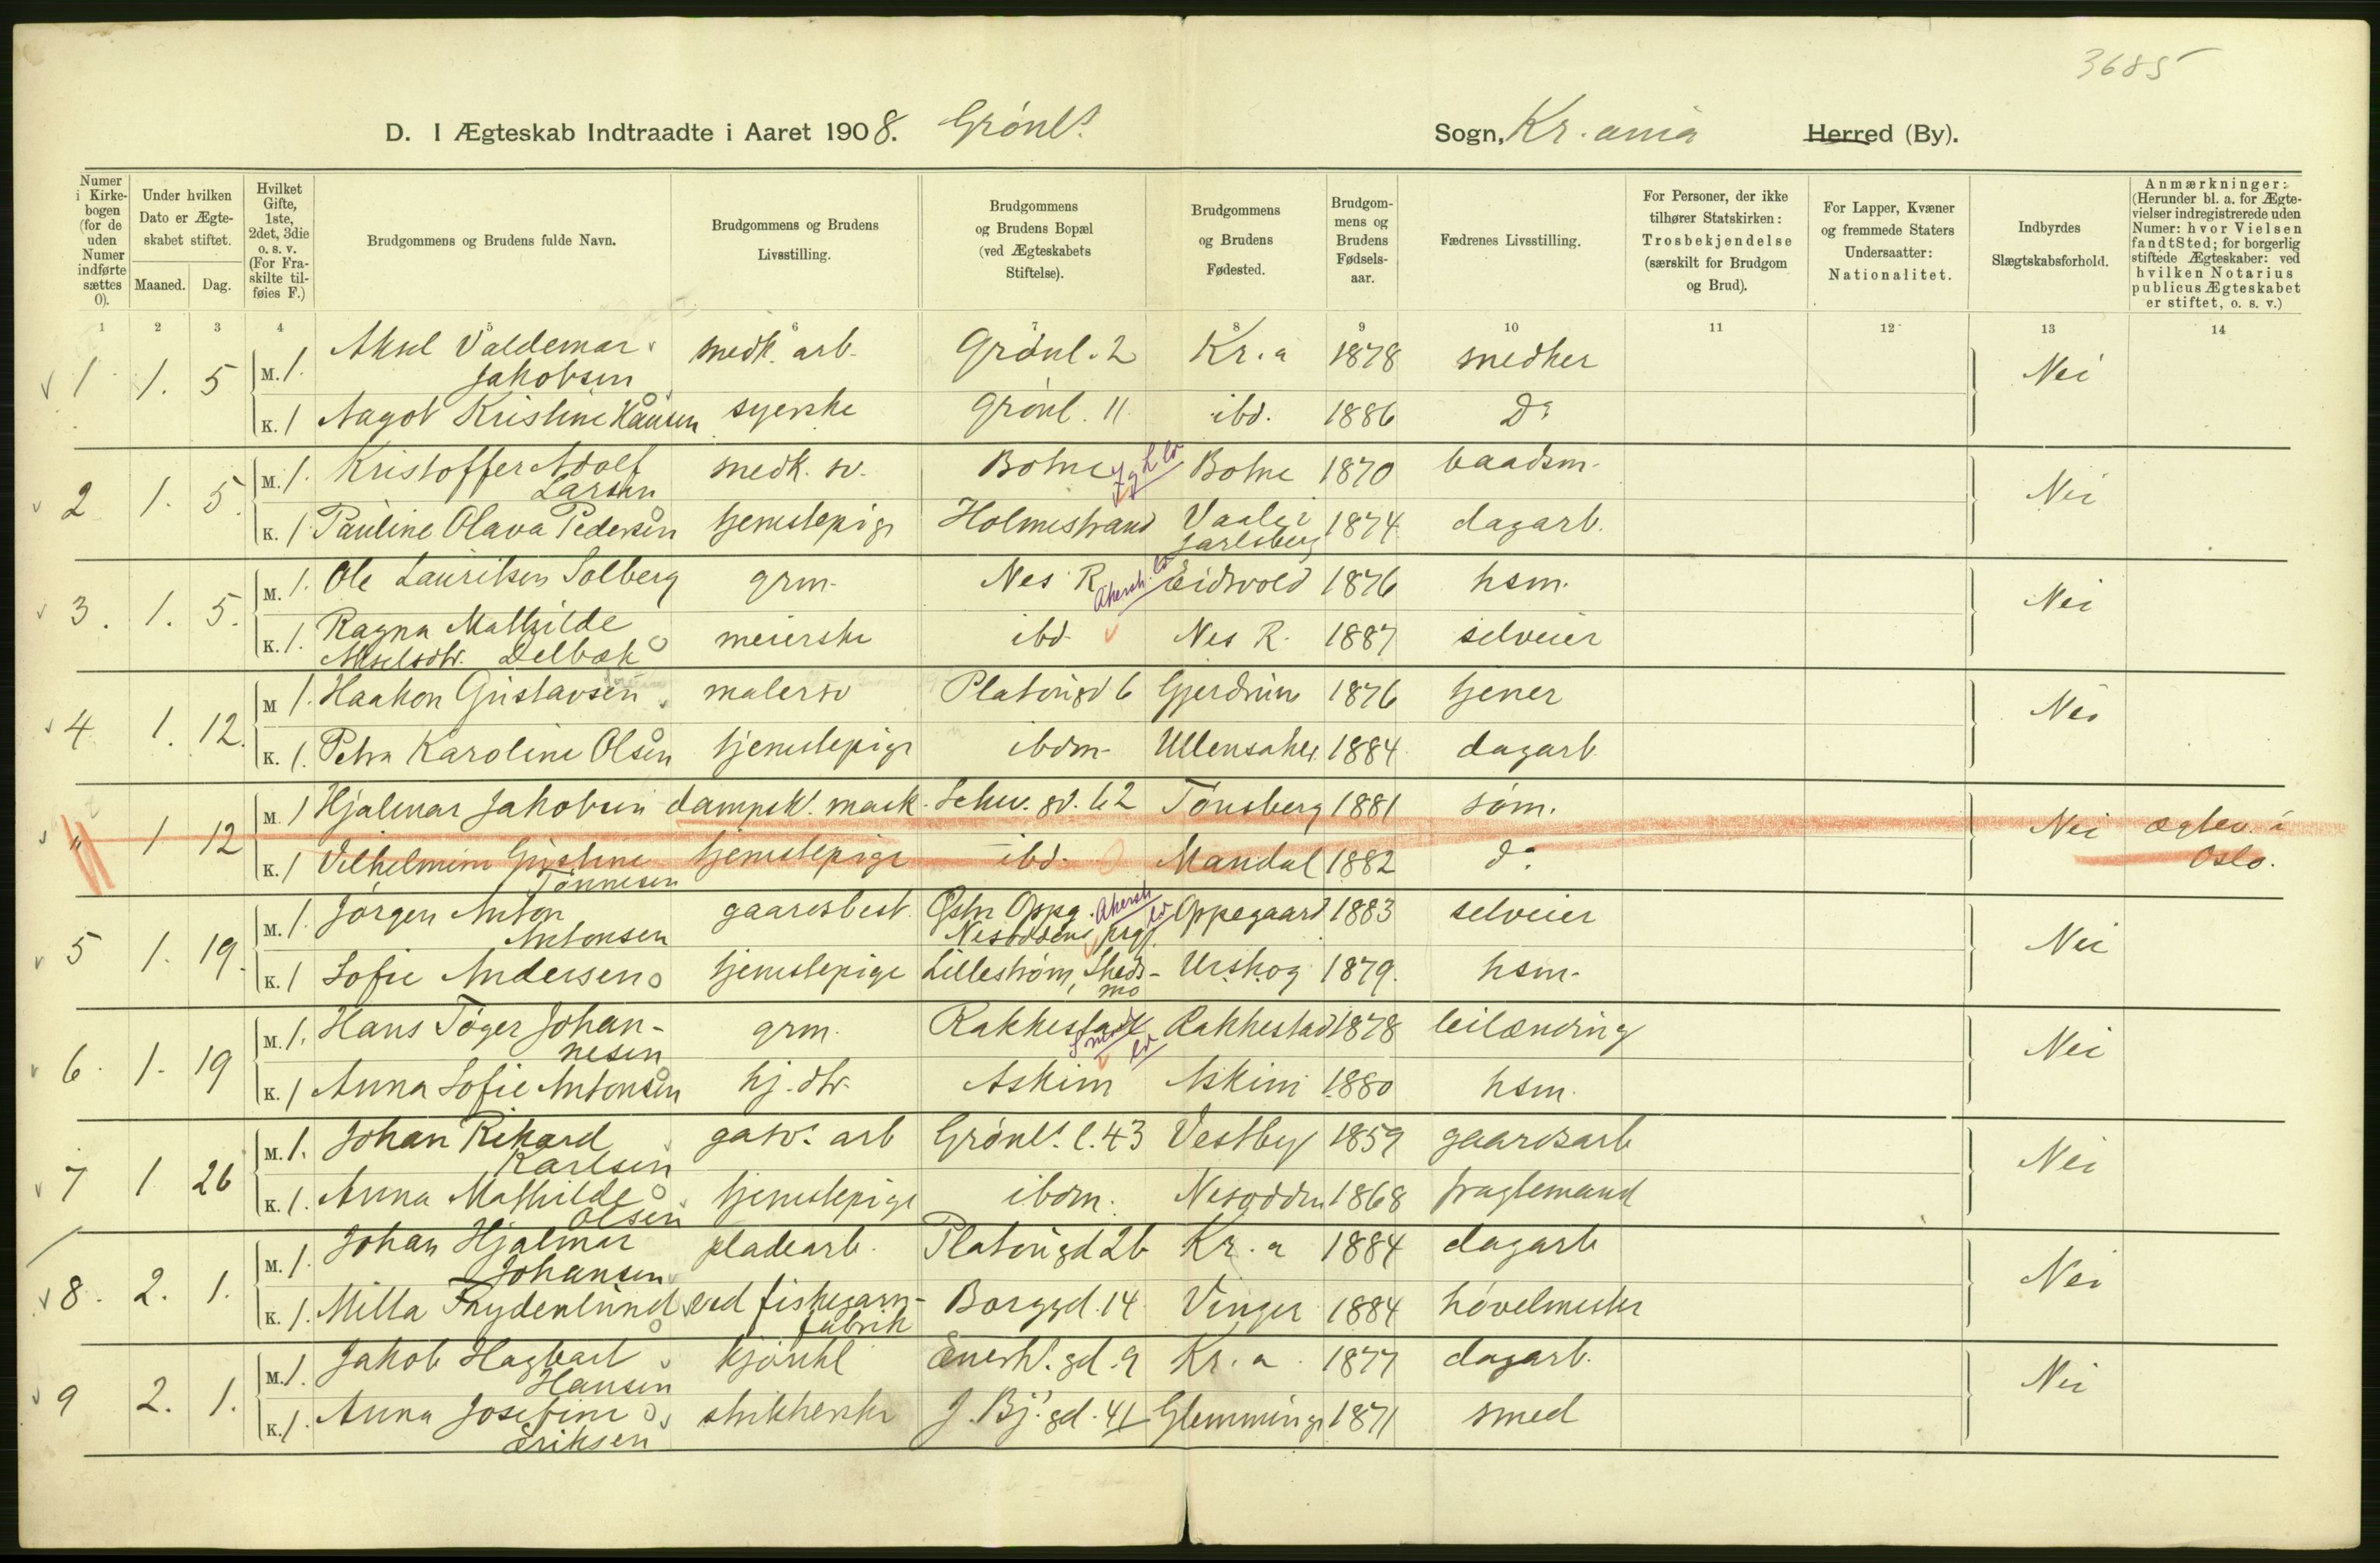 3685
D. I Ægteskab Indtraadte i Aaret 1908. Grönl. Sogn, Kr.ania Herred (By).
Numer i Kirkebogen (for de uden Numer indførte sættes 0).
Under hvilken Dato er Ægteskabet stiftet.
Maaned. Dag.
Hvilket Gifte, 1ste, 2det, 3die o. s. v. (For Fraskilte tilføies F.)
Brudgommens og Brudens fulde Navn.
Brudgommens og Brudens Livsstilling.
Brudgommens og Brudens Bopæl (ved Ægteskabets Stiftelse).
Brudgommens og Brudens Fødested.
Brudgommens og Brudens Fødselsaar.
Fædrenes Livsstilling.
For Personer, der ikke tilhører Statskirken: Trosbekjendelse (særskilt for Brudgom og Brud).
For Lapper, Kvæner og fremmede Staters Undersaatter: Nationalitet.
Indbyrdes Slægtskabsforhold.
Anmærkninger: (Herunder bl. a. for Ægtevielser indregistrerede uden Numer: hvor Vielsen fandt Sted; for borgerlig stiftede Ægteskaber: ved hvilken Notarius publicus Ægteskabet er stiftet, o. s. v.)
1 2 3 4 5 6 7 8 9 10 11 12 13 14
1 1. 5 M. 1. Aksel Valdemar Jakobsen snedk. arb. Grönl. 2 Kr.a 1878 snedker Nei
K. 1 Aagot Kristine Hansen syerske Grönl. 11 ibd. 1886 Do
2 1. 5. M. 1. Kristoffer Adolf Larsen snedk. sv. Botne Botne 1870 baadsm. Nei
K. 1 Pauline Olava Pedersen tjenestepige Holmestrand Vaale i Jarlsberg 1874 dagarb.
3. 1. 5. M. 1. Ole Lauritsen Solberg grm. Nes R. Akersh. Eidsvold 1876 hsm. Nei
K. 1. Ragna Mathilde Akselsdtr. Delbæk meierske ibd. Nes R. 1887 selveier
4 1. 12. M 1. Haakon Gustavsen malersv Platougd 6 Gjerdrum 1876 tjener Nei
K. 1. Petra Karoline Olsen tjenestepige ibdm. Ullensaker 1884 dagarb
" 1 12 M. 1 Hjalmar Jakobsen dampsk. mask. Schw. gd. 62 Tönsberg 1881 söm. Nei ægtev. i Oslo.
K. 1 Vilhelmine Gustine Tönnesen tjenestepige ibd. Mandal 1882 do
5 1. 19. M. 1. Jörgen Anton Antonsen gaardbest. Östr Oppg. Nesoddens prgj. Akersh Oppegaard 1883 selveier Nei
K. 1 Sofie Andersen tjenestepige Lilleström, Skedsmo Urskog 1879. hsm.
6. 1. 19 M. 1. Hans Töger Johannesen grm. Rakkestad Rakkestad 1878 leilænding Nei
K. 1 Anna Sofie Antonsen hj. dtr. Askim Askim 1880 hsm.
7 1 26 M. 1. Johan Rikard Karlsen gasv. arb Grönl. l. 43 Vestby 1859 gaardsarb Nei
K. 1. Anna Mathilde Olsen tjenestepige ibdm. Nesodden 1868 fragtemand
8. 2. 1. M. 1. Johan Hjalmar Johansen pladearb. Platougd 26 Kr.a 1884 dagarb Nei
K. 1. Milla Frydenlund ved fiskegarnfabrik Borggd. 14 Vinger 1884 hövelmester
9 2. 1. M. 1. Jakob Hagbart Hansen Enerh. gd. 9 Kr.a. 1877 dagarb. Nei
K. 1. Anna Josefine Eriksen strikkerske J. Bj. gd. 41 Glemminge 1871 smed